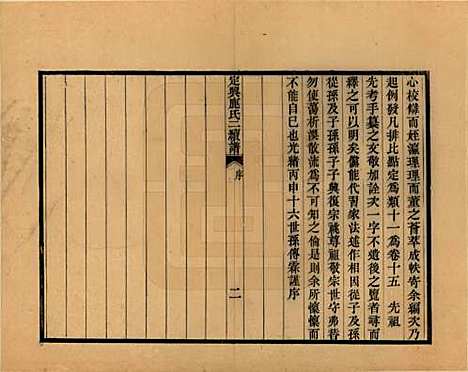 心校辭而姪瀛理理而董之薈萃成帙寄余編次乃
起例發凡排比點定爲類十一爲卷十五　先祖
先考手纂之文敬加詮次一字不遺後之覽者尋而
釋之可以明矣儻能代習家法述作相因
從孫及子孫孫子子興復宗祧尊祖敬宗世守弗替
勿使蕩析渙散流爲不可知之倫是則余所懷懷而
不能自已也光緒丙申十六世孫傳霖謹序
定興鹿氏二續譜
序
二